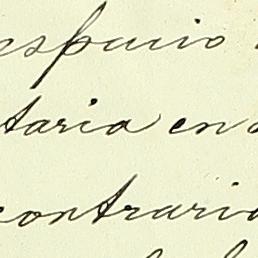 espacio
taria en
contrario